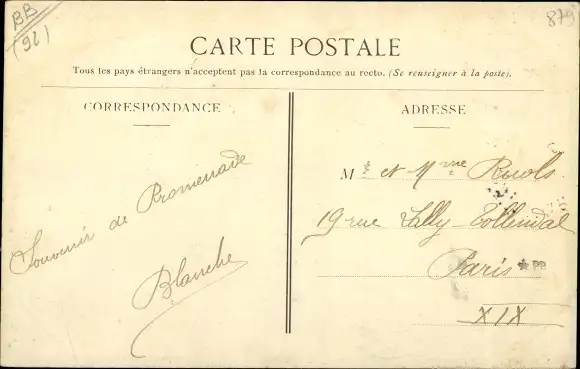 BB
(92)
879
CARTE POSTALE
Tous les pays étrangers n'acceptent pas la correspondance au recto. (Se renseigner à la poste).
CORRESPONDANCE
Souvenir de Promenade
Blanche
ADRESSE
Mr et Mme Ruols
19 rue Lally-Tollendal
Paris
PP
XIX